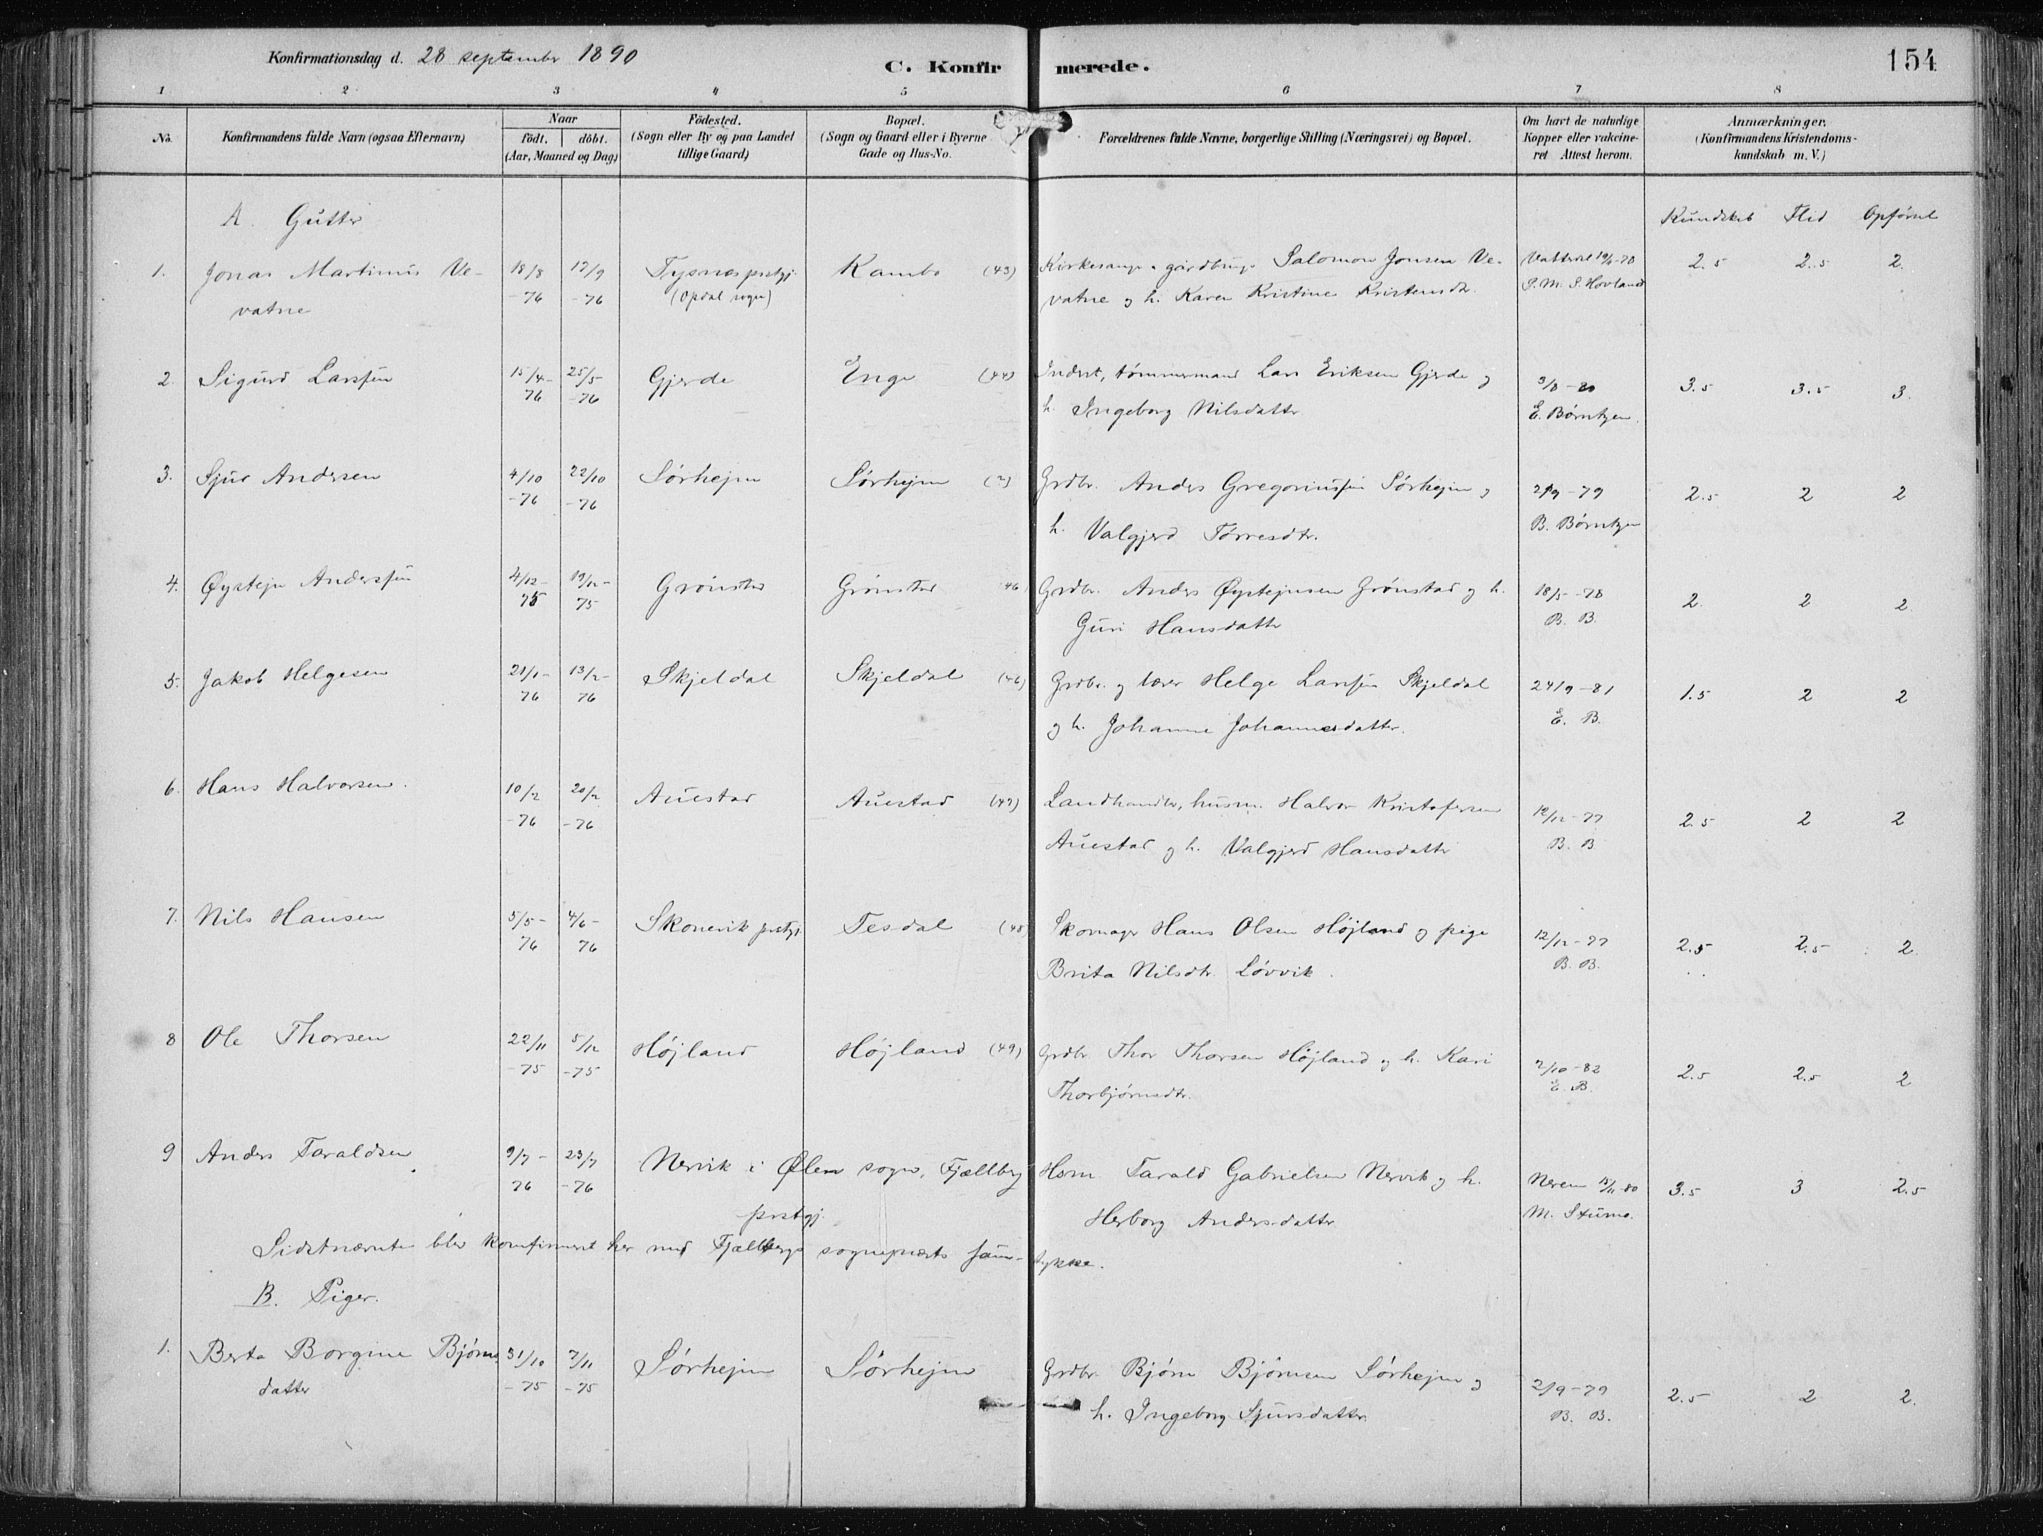 Konfirmationsdag d. 28 september 1890
C. Konfirmerede.
154
1 2 3 4 5 6 7 8
No.
Konfirmandens fulde Navn (ogsaa Efternavn)
Naar
født. døbt.
(Aar, Maaned og Dag)
Födested.
(Sogn eller By og paa Landet
tillige Gaard)
Bopæl.
(Sogn og Gaard eller i Byerne
Gade og Hus-No.
Forældrenes fulde Navne, borgerlige Stilling (Næringsvei) og Bopæl.
Om havt de naturlige
Kopper eller vakcine-
ret Attest herom.
Anmærkninger.
(Konfirmandens Kristendoms-
kundskab m. V.)
A. Gutter
Kundskab Flid Opførsel
1. Jonas Martinus Ve- 18/8 17/9 Tysnes prstgj. Kambo (43) Kirkesanger gårdbrug. Salomon Jonsen Ve- 2.5 2.5 2.
vatne -76 -76 (Opdal sogn) vatne og h. Karen Kristine Kristensdtr. S. M. S. Hovland
2. Sigurd Larssen 15/4- 25/5 Gjerde Enge (44) Inderst, tømmermand Lars Eriksen Gjerde og 3/8-80 3.5 3.5 3.
76 -76 h. Ingeborg Nilsdatter E. Børntzen.
3. Sjur Andersen 4/10 22/10 Sørhejm Sørhejm (2) Grdbr. Anders Gregoriussen Sørhejm og 2/9-79 2.5 2 2
-76 -76 h. Valgjerd Tørresdtr. B. Børntzen
4. Øystejn Anderssen 4/12- 19/12- Grønstad Grønstad 46 Grdbr. Anders Øystejnsen Grønstad og h. 18/5-78 2 2 2
75 75 Guri Hansdatter B. B.
5. Jakob Helgesen 21/1- 13/2- Skjeldal Skjeldal (46) Grdbr. og lærer Helge Larssen Skjeldal 24/9-81 1.5 2 2
76 76 og h. Johanne Johannesdatter. E. B.
6. Hans Halvorsen. 10/2 20/2 Auestad Auestad (47) Landhandler, husm. Halvor Kristofersen 12/12-77 2.5 2 2
-76 -76 Auestad og h. Valgjerd Hansdatter B. B.
7. Nils Hansen 5/5- 4/6- Skonevik prstgj. Tesdal (48 Skomager Hans Olsen Højland og pige 12/12-77 2.5 2.5 2
76 76 Brita Nilsdtr. Løvvik. B. B.
8 Ole Thorsen 22/11 5/12 Højland Højland (49) Grdbr. Thor Thorsen Højland og h. Kari 2/10-82 2.5 2.5 2
-75 -75 Thorbjørnsdtr. E. B.
9 Anders Taraldsen 9/7- 23/7 Nervik i Ølen sogn, Fjællberg Hsm Tarald Gabrielsen Nervik og h. 3.5 3 2.5
76 -76 prstgj. Herborg Andersdatter M. Stumo.
Sidstnævnte blev konfirmeret her med Fjællbergs sogneprests samtykke.
B. Piger.
1. Berta Borgine Bjørns 31/10 7/11 Sørhejm Sørhejm Grdbr. Bjørn Bjørnsen Sørhejm og 2/9-79 2.5 2 2.
datter -75 -75 h. Ingeborg Sjursdatter B. B.